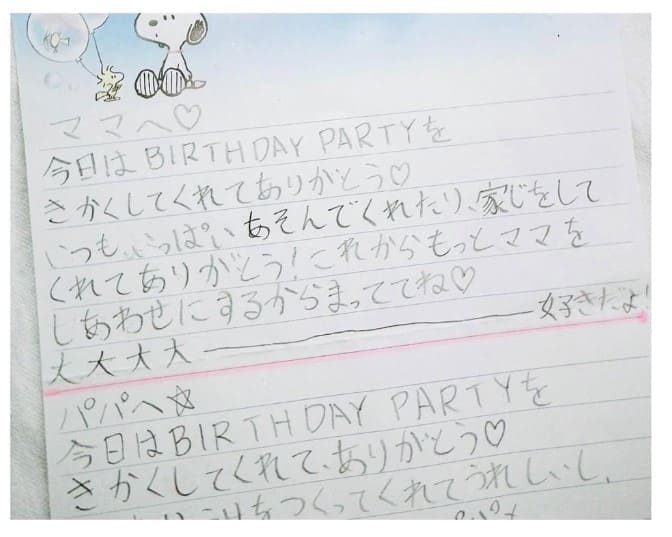 ママへ♡
今日はBIRTHDAY PARTYを
きかくしてくれてありがとう♡
いつも、いっぱいあそんでくれたり、家じをして
くれてありがとう！これからもっとママを
しあわせにするからまっててね♡
大大大大――――――好きだよ！
パパへ☆
今日はBIRTHDAY PARTYを
きかくしてくれて、ありがとう♡
をつくってくれてうれしいし、